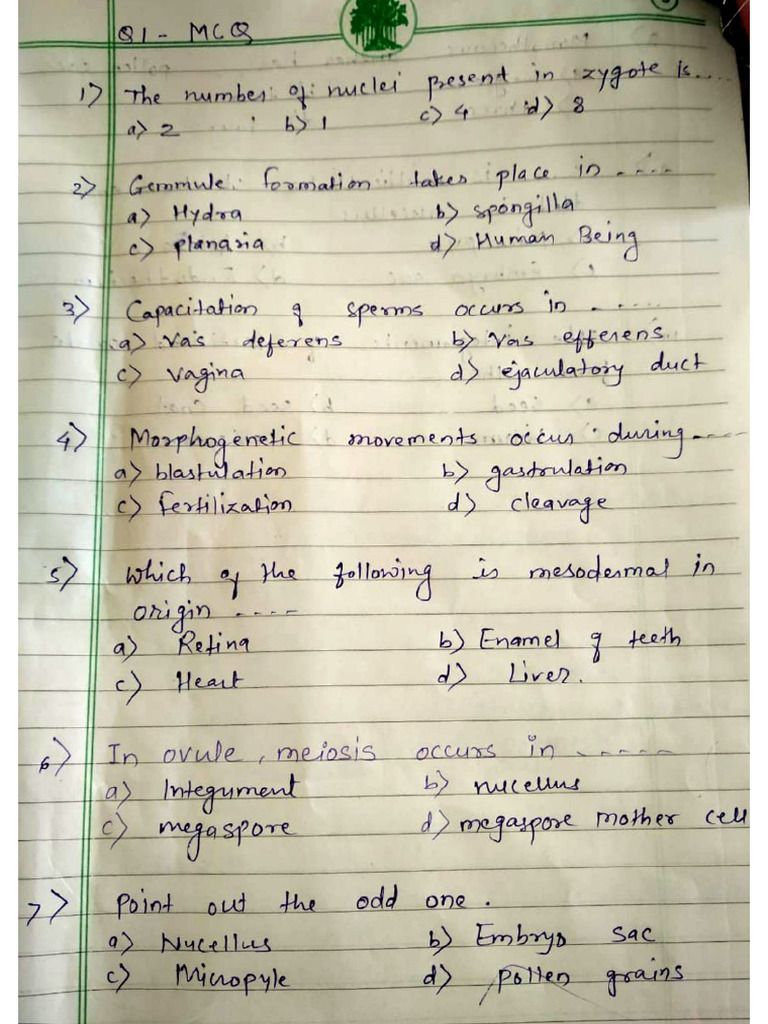 Q1 - MCQ
1) The number of nuclei present in zygote is....
a) 2 b) 1 c) 4 d) 8
2) Gemmule formation takes place in ....
a) Hydra b) spongilla
c) planaria d) Human Being
3) Capacitation of sperms occurs in .....
a) Vas deferens b) Vas efferens
c) vagina d) ejaculatory duct
4) Morphogenetic movements occur during....
a) blastulation b) gastrulation
c) fertilization d) cleavage
5) Which of the following is mesodermal in
origin ....
a) Retina b) Enamel of teeth
c) Heart d) Liver.
6) In ovule, meiosis occurs in .....
a) Integument b) nucellus
c) megaspore d) megaspore mother cell
7) Point out the odd one.
a) Nucellus b) Embryo sac
c) Micropyle d) pollen grains